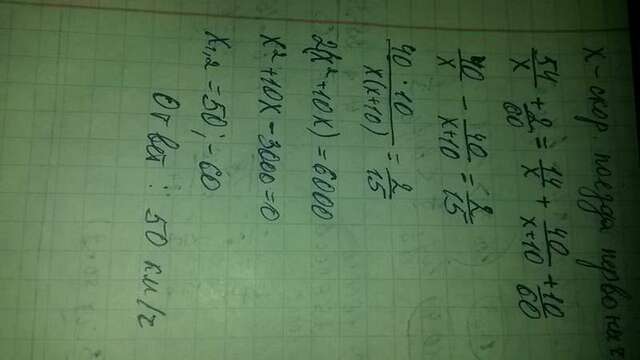 x - скор. поезда первонач
54/x + 2/60 = 14/x + 40/(x+10) + 10/60
40/x - 40/(x+10) = 2/15
40·10/(x(x+10)) = 2/15
2(x²+10x) = 6000
x²+10x-3000=0
x₁,₂ = 50; -60
Ответ: 50 км/г